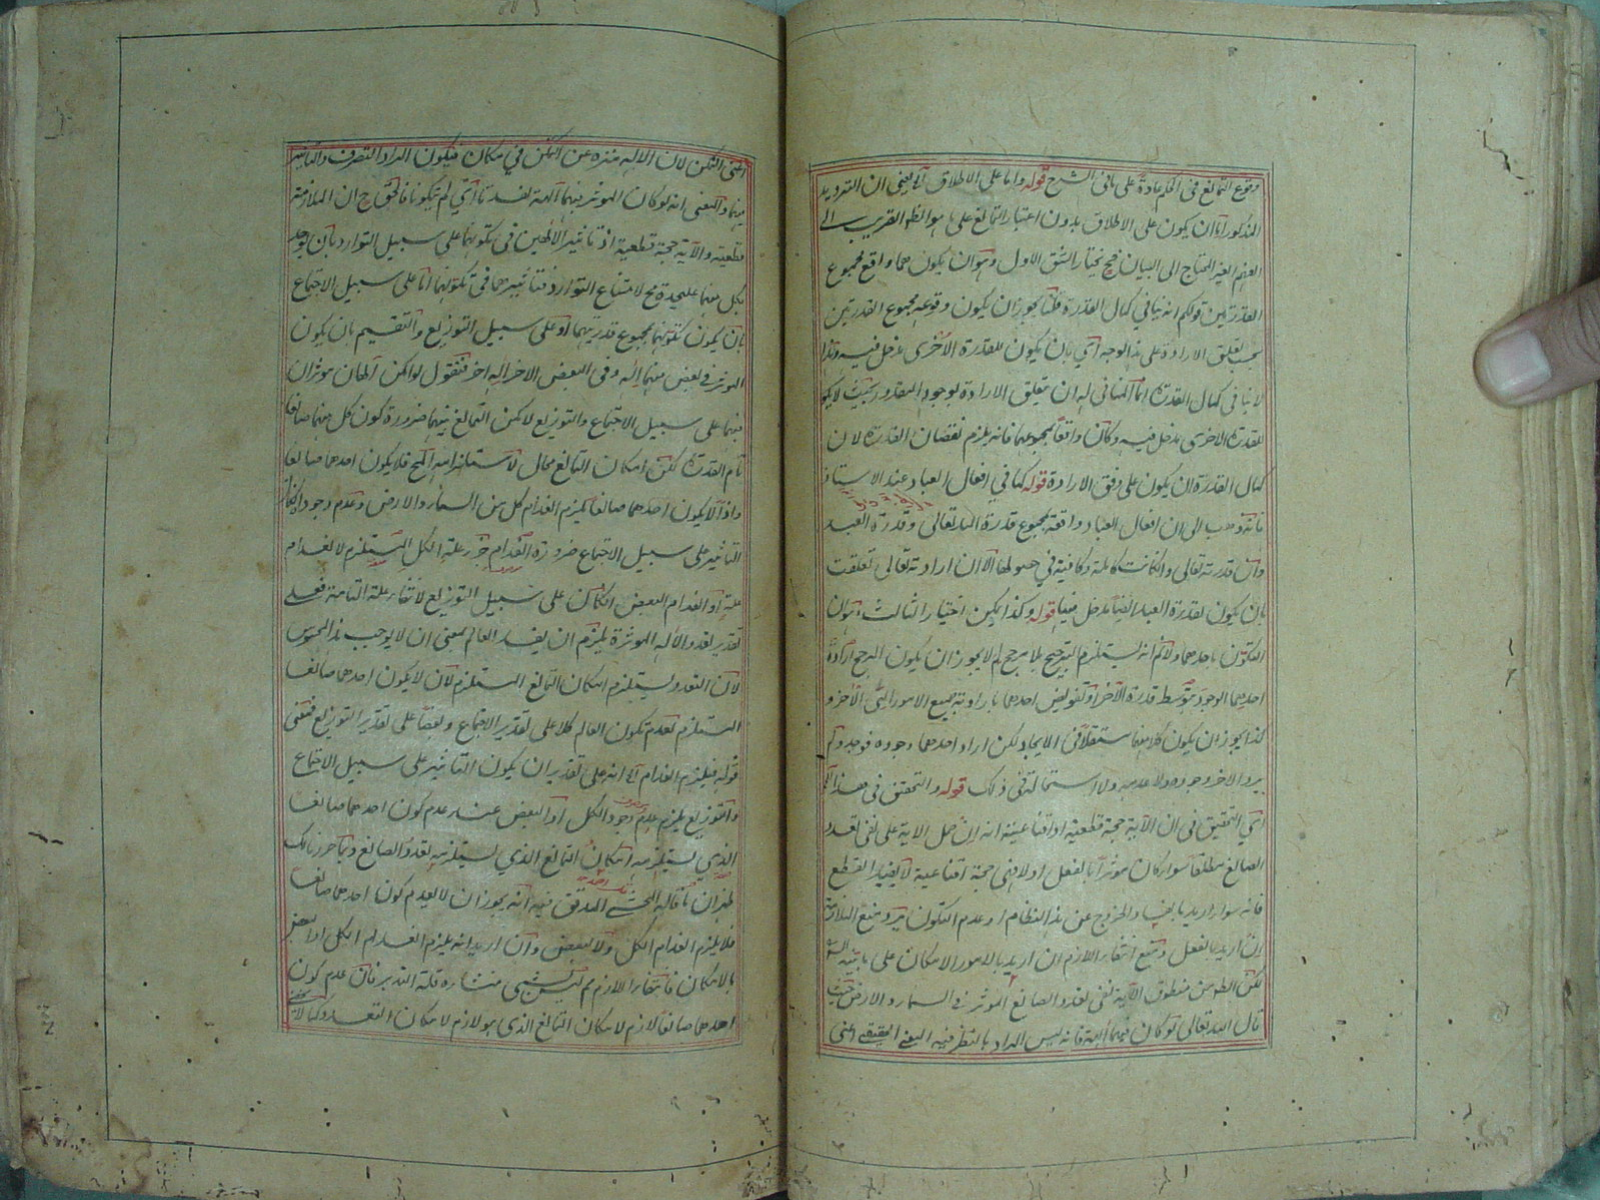 وقوع التمانع في الحكم عادة على ما في الشرح قوله واما على الاطلاق آه يعني ان الترديد
المذكور اما ان يكون على الاطلاق بدون اعتبار التمانع على ما هو الظ القريب الى
الفهم الغير المحتاج الى البيان فح نختار الشق الاول وهو ان يكون هما واقع بمجموع
القدرتين قولكم انه ينافي كمال القدرة قلنا يجوز ان يكون وقوعه بمجموع القدرتين
بحسب تعلق الارادة على هذا الوجه اي بان يكون للقدرة الاخرى مدخل فيه وهذا
لا ينافي كمال القدرة انما المنافي له ان تتعلق الارادة بوجود المقدور بحيث لا يكون
للقدرة الاخرى مدخل فيه وكان واقعا بمجموعهما فانه يلزم نقصان القدرة لان
كمال القدرة ان يكون على وفق الارادة قوله كما في افعال العباد عند الاستاذ
فانه ذهب الى ان افعال العباد واقعة بمجموع قدرة الله تعالى وقدرة العبد
وان قدرته تعالى وان كانت كاملة وكافية في حصولها الا ان ارادته تعالى تعلقت
بان يكون لقدرة العبد ايضا مدخل فيها قوله وكذا يمكن اختيار الثالث وهو ان
التكون باحدهما ولانم انه يستلزم الترجيح بلا مرجح لم لا يجوز ان يكون المرجح ارادة
احدهما الوجود بتوسط قدرة الآخر او تفويض احدهما بارادته جميع الامور الى الآخر و
كذا يجوز ان يكون كل منهما مستقلا في الايجاد لكن اراد احدهما وجوده فوجد ولم
يرد الآخر وجوده ولا عدمه ولا استحالة في ذلك قوله والتحقيق في هذا المقام
اي التحقيق في ان الآية حجة قطعية او اقناعية انه ان حمل الآية على نفي تعدد
الصانع مطلقا سواء كان موثرا بالفعل او لا فهي حجة اقناعية لا يفيد القطع
فانه سواء اريد بالفساد الخروج عن هذا النظام او عدم التكون يرد منع الملازمة
ان اريد بالفعل ومنع انتفاء اللازم ان اريد بالامور الامكان على ما بينه الش
لكن الظ من منطوق الآية نفي تعدد الصانع الموثر في السماء والارض حيث
قال الله تعالى لو كان فيهما آلهة فانه ليس المراد بالظرفية المعنى الحقيقي اعني
اعني التمكن لان الاله منزه عن التمكن في مكان فيكون المراد التصرف والتاثير
فيهما والمعنى انه لو كان الموثر فيهما آلهة لفسدتا اي لم تتكونا فالحق ح ان الملازمة
قطعية والآية حجة قطعية اذ تاثير الالهين في تكونهما على سبيل التوارد بان يوجد
بكل منهما عليحدة مح لامتناع التوارد فتاثيرهما في تكونهما اما على سبيل الاجتماع
بان يكون تكونهما بمجموع قدرتيهما او على سبيل التوزيع والتقسيم بان يكون
الموثر في بعض منهما اله وفي البعض الاخر اله اخر فنقول لو امكن آلهان موثران
فيهما على سبيل الاجتماع والتوزيع لامكن التمانع بينهما ضرورة كون كل منهما صانعا
تام القدرة لكن امكان التمانع محال لاستلزامه المح فلا يكون احدهما صانعا
واذا لا يكون احدهما صانعا يلزم انعدام كل من السماء والارض وعدم وجودها ان كان
التاثير على سبيل الاجتماع ضرورة انعدام جزء علة الكل المستلزم لانعدام
علته او انعدام البعض ان كان على سبيل التوزيع لانتفاء علته التامة فعلى
تقدير تعدد الاله الموثرة يلزم ان يفسد العالم بمعنى ان لا يوجب هذا المحسوس
لان التعدد يستلزم امكان التمانع المستلزم لان لا يكون احدهما صانعا
المستلزم لعدم تكون العالم كلا على تقدير الاجتماع وبعضا على تقدير التوزيع فمعنى
قوله فيلزم انعدام آه انه على تقدير ان يكون التاثير على سبيل الاجتماع
والتوزيع يلزم عدم وجود الكل او البعض عند عدم كون احدهما صانعا
الذي يستلزمه امكان التمانع الذي يستلزمه تعدد الصانع وبما حررنا لك
ظهر ان ما قاله المحشي المدقق فيه انه يجوز ان لا يعدم كون احدهما صانعا
فلا يلزم انعدام الكل ولا البعض وان اريد انه يلزم انعدام الكل او البعض
بالامكان فانتفاء اللازم مم ليس بشيء منشاءه قلة التدبر فان عدم كون
احدهما صانعا لازم لامكان التمانع الذي هو لازم لامكان التعدد